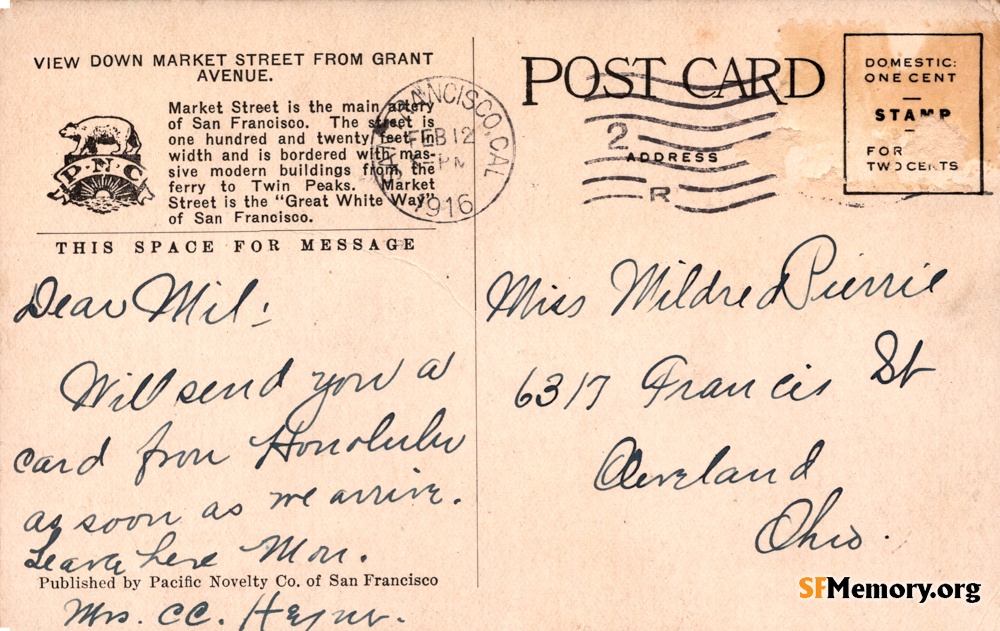 VIEW DOWN MARKET STREET FROM GRANT
AVENUE.
Market Street is the main artery
of San Francisco. The street is
one hundred and twenty feet in
width and is bordered with mas-
sive modern buildings from the
ferry to Twin Peaks. Market
Street is the "Great White Way"
of San Francisco.
P·N·C
THIS SPACE FOR MESSAGE
Dear Mil:
Will send you a
card from Honolulu
as soon as we arrive.
Leave here Mon.
Published by Pacific Novelty Co. of San Francisco
Mrs. CC.
SAN FRANCISCO, CAL
FEB 12
PM
1916
POST CARD
2
ADDRESS
R
DOMESTIC:
ONE CENT
STAMP
FOR
TWO CENTS
Miss Mildred Pierrie
6317 Francis St
Cleveland
Ohio.
SFMemory.org